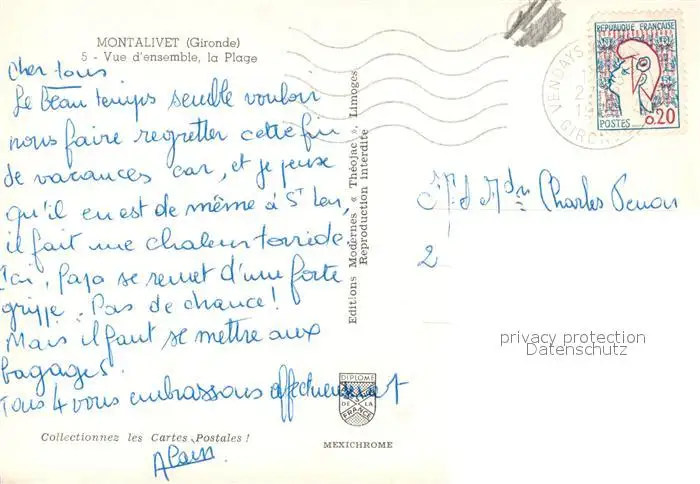 MONTALIVET (Gironde)
5 - Vue d'ensemble, la Plage
Cher tous.
Le beau temps semble vouloir
nous faire regretter cette fin
de vacances car, et je pense
qu'il en est de même à St Leu,
il fait une chaleur torride
Ici, Papa se remet d'une forte
grippe. Pas de chance!
Mais il faut se mettre aux
bagages.
Tous 4 vous embrassons affectueusement
Collectionnez les Cartes Postales !
Alain.
Editions Modernes « Théojac », Limoges
Reproduction interdite
DIPLOME
DE LA
FRANCE
MEXICHROME
VENDAYS
GIRONDE
REPUBLIQUE FRANÇAISE
POSTES
0,20
M. et Mdme Charles
2
privacy protection
Datenschutz